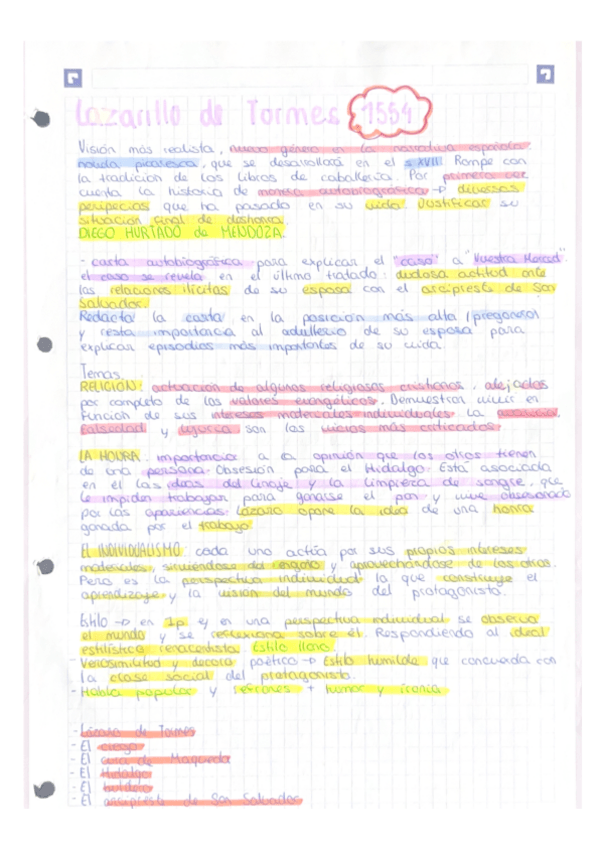 Lazarillo de Tormes 1554
Visión más realista, nuevo género en la narrativa española:
novela picaresca, que se desarrollará en el s XVII. Rompe con
la tradición de los libros de caballería. Por primera vez
cuenta la historia de manera autobiográfica → diversas
peripecias que ha pasado en su vida. Justificar su
situación final de deshonra.
DIEGO HURTADO de MENDOZA.
- carta autobiográfica para explicar el "caso" a "Vuestra Merced"
el caso se revela en el último tratado: dudosa actitud ante
las relaciones ilícitas de su esposa con el arcipreste de San
Salvador.
Redacta la carta en la posición más alta (pregonero)
y resta importancia al adulterio de su esposa para
explicar episodios más importantes de su vida.
Temas.
RELIGIÓN: actuación de algunos religiosos cristianos, alejados
por completo de los valores evangélicos. Demuestran vivir en
función de sus intereses materiales individuales. La
falsedad y lujuria son los vicios más criticados.
LA HONRA: importancia a la opinión que los otros tienen
de una persona. Obsesión para el Hidalgo. Está asociada
en él las ideas del linaje y la limpieza de sangre, que
le impiden trabajar para ganarse el pan y vive obsesionado
por las apariencias. Lázaro opone la idea de una honra
ganada por el trabajo.
EL INDIVIDUALISMO: cada uno actúa por sus propios intereses
materiales, sirviéndose del engaño y aprovechándose de los otros.
Pero es la perspectiva individual lo que construye el
aprendizaje y la visión del mundo del protagonista.
Estilo → en 1p y en una perspectiva individual se observa
el mundo y se reflexiona sobre él. Respondiendo al ideal
estilístico renacentista. Estilo llano.
- Verosimilitud y decoro poético → Estilo humilde que concuerda con
la clase social del protagonista.
- Habla popular y refranes + humor y ironía
- Lázaro de Tormes
- El ciego
- El cura de Maqueda
- El Hidalgo
- El buldero
- El arcipreste de San Salvador